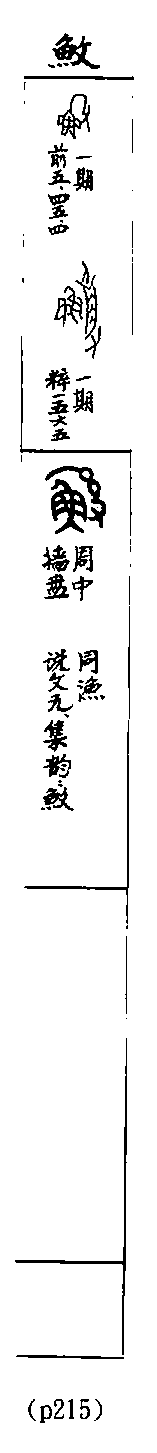 𩵎
一期
前五·四五·四
一期
粹一五六五
周中
墙盘
同渔
说文无、集韵:𩵎
(p215)